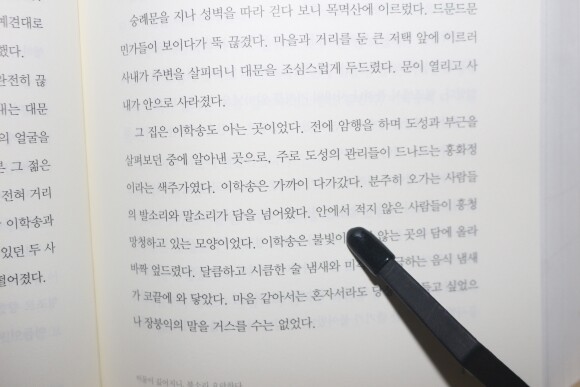 예견대로
했다.
완전히 끊
내는 대문
의 얼굴을
은 그 젊은
전혀 거리
이학송과
있던 두 사
떨어졌다.
숭례문을 지나 성벽을 따라 걷다 보니 목멱산에 이르렀다. 드문드문
민가들이 보이다가 뚝 끊겼다. 마을과 거리를 둔 큰 저택 앞에 이르러
사내가 주변을 살피더니 대문을 조심스럽게 두드렸다. 문이 열리고 사
내가 안으로 사라졌다.
그 집은 이학송도 아는 곳이었다. 전에 암행을 하며 도성과 부근을
살펴보던 중에 알아낸 곳으로, 주로 도성의 관리들이 드나드는 홍화정
이라는 색주가였다. 이학송은 가까이 다가갔다. 분주히 오가는 사람들
의 발소리와 말소리가 담을 넘어왔다. 안에서 적지 않은 사람들이 흥청
망청하고 있는 모양이었다. 이학송은 불빛이 않는 곳의 담에 올라
바짝 엎드렸다. 달큼하고 시큼한 술 냄새와 음식 냄새
가 코끝에 와 닿았다. 마음 같아서는 혼자서라도 싶었으
나 장붕익의 말을 거스를 수는 없었다.